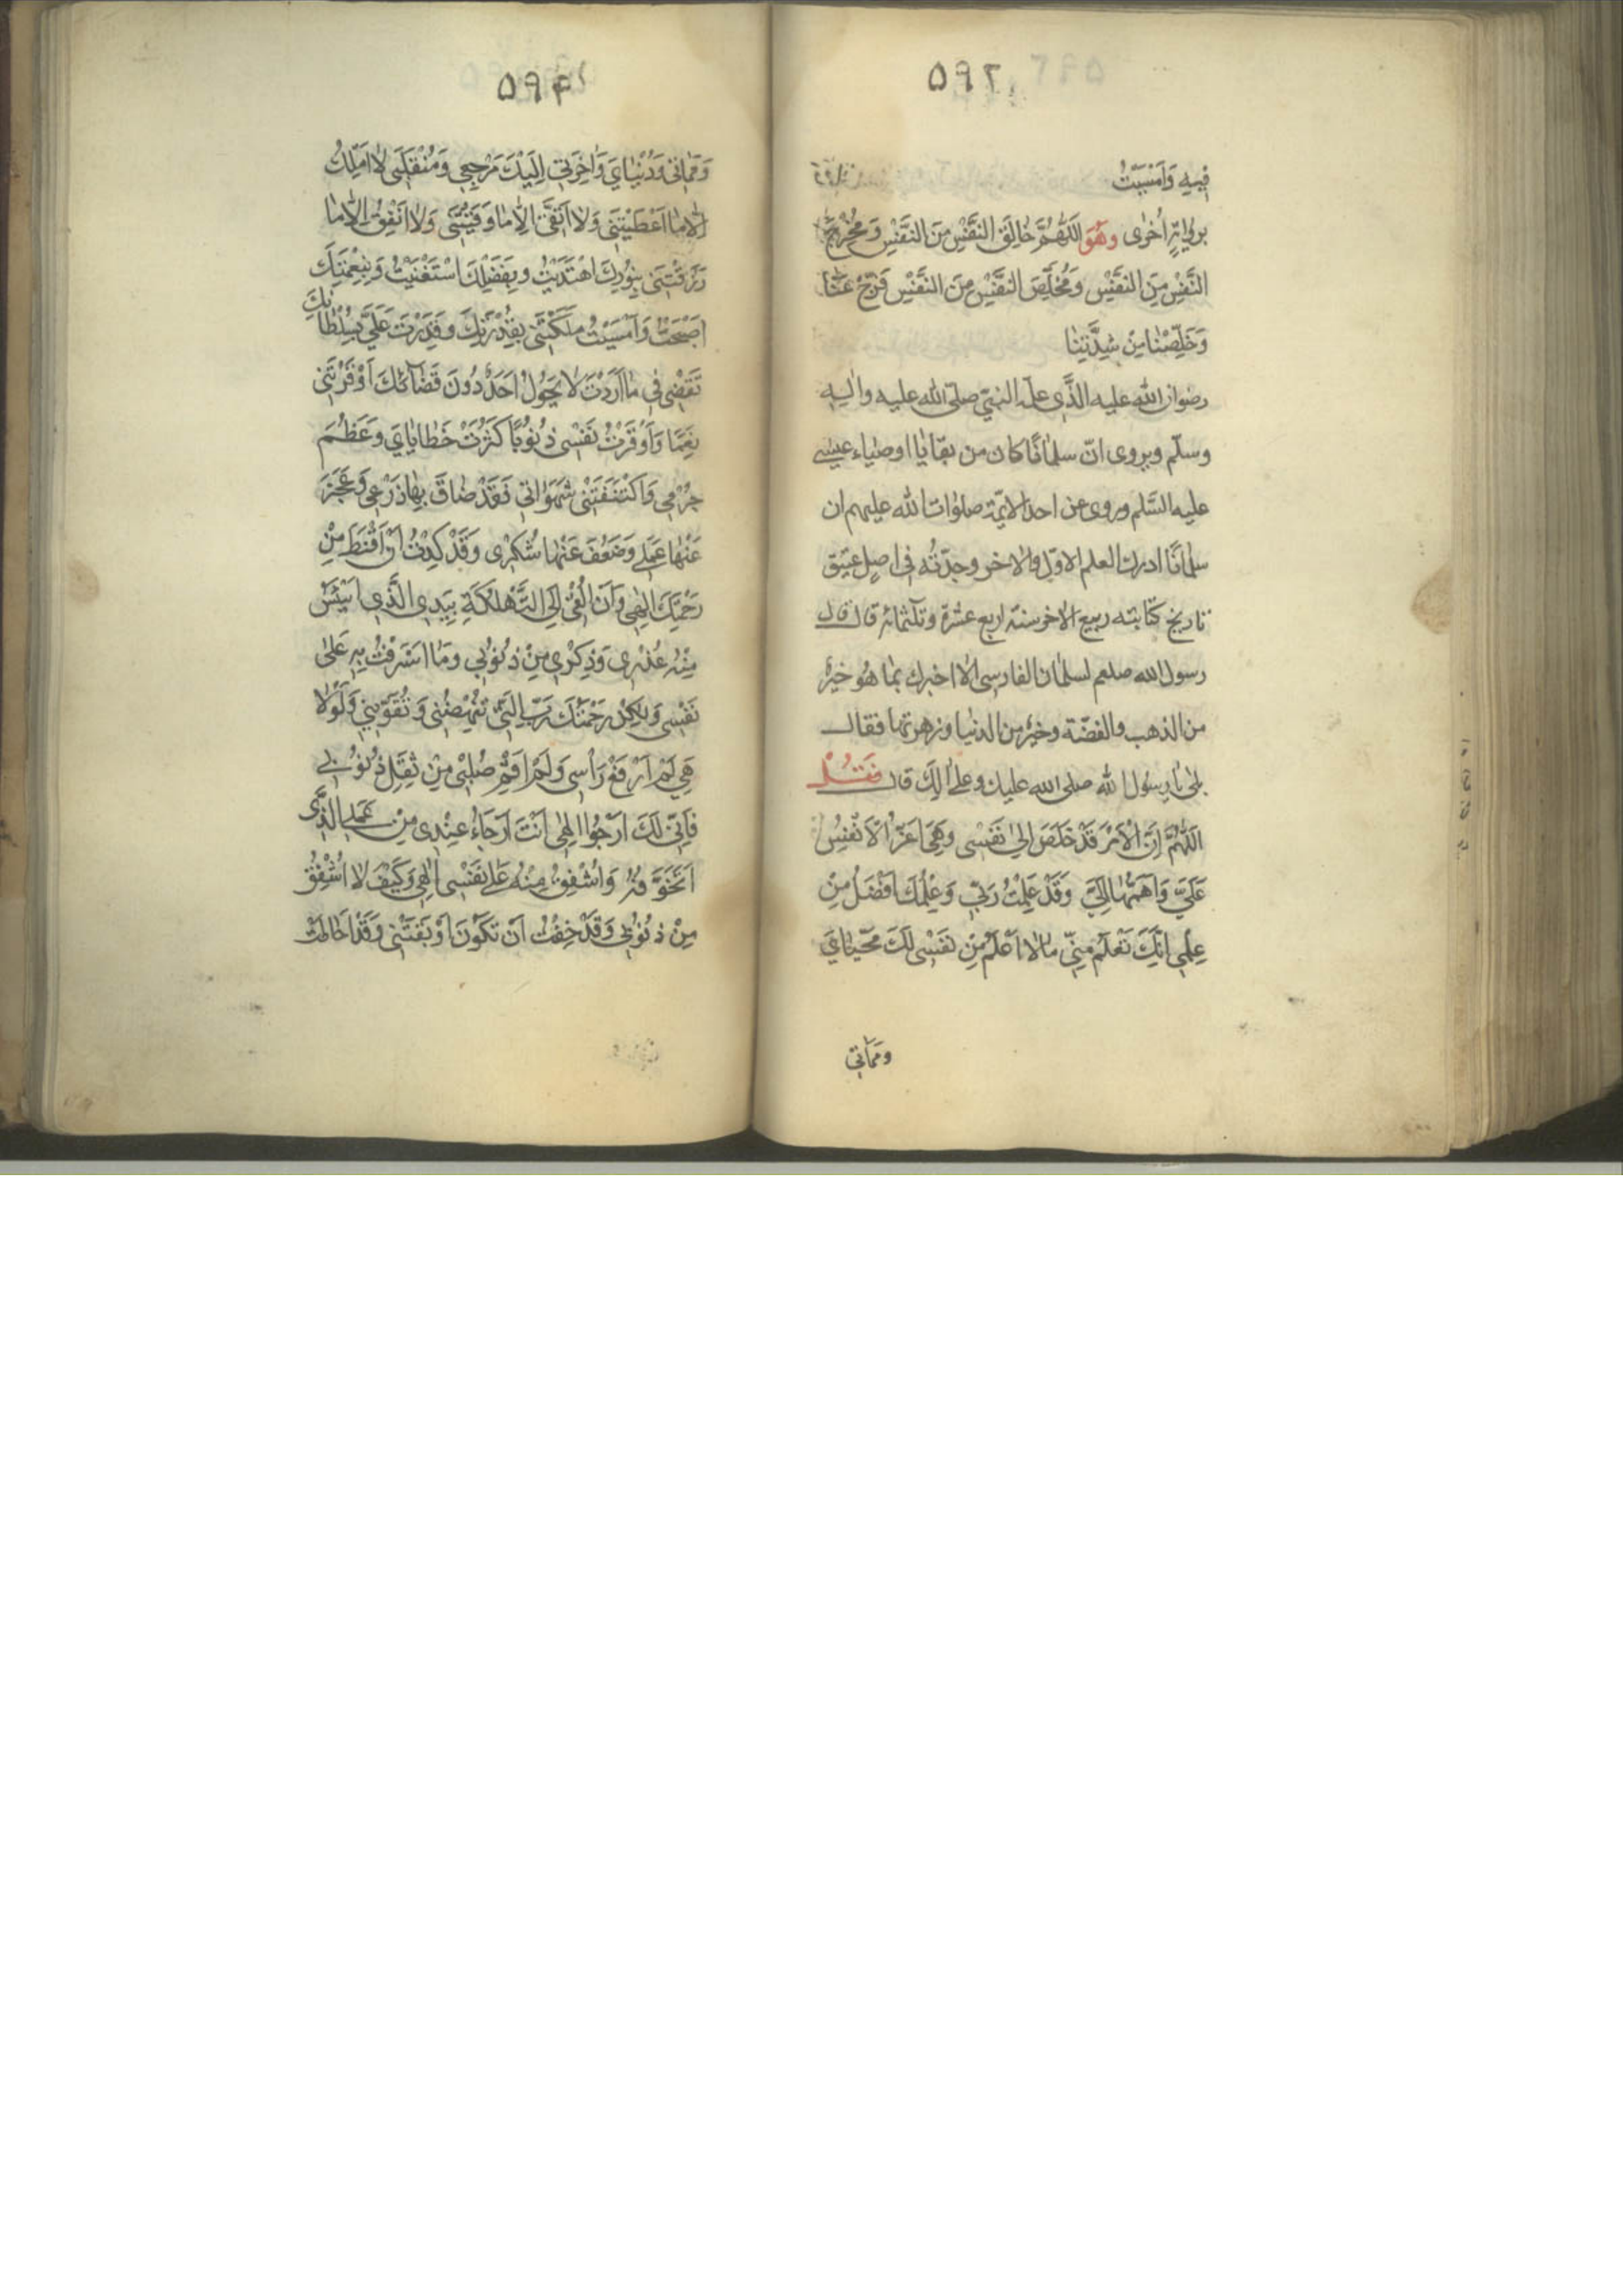 ۵۹۳
فِيهِ وَاَمْسَيْتُ
بروايةٍ اُخْرٰى وهُوَ اَللّٰهُمَّ خٰالِقَ النَّفْسِ مِنَ النَّفْسِ وَمُخْرِجَ
النَّفْسِ مِنَ النَّفْسِ وَمُخَلِّصَ النَّفْسِ مِنَ النَّفْسِ فَرِّجْ عَنّٰا
وَخَلِّصْنٰا مِنْ شِدَّتِنٰا
رضوان الله عليه الذّى علّمه النبىّ صلّى الله عليه واليه
وسلّم ويروى انّ سلمانًا كان من بقايا اوصياء عيسى
عليه السّلم وروى عن احد الائمّة صلوات الله عليهم ان
سلمانًا ادرك العلم الاوّل والاخر وجدتُه فى اصل عتيق
تاريخ كتابته ربيع الاخر سنة اربع عشرة وثلثمائة قال قال
رسول الله صلعم لسلمان الفارسى الا اخبرك بما هُو خيرٌ
من الذهب والفضّة وخيرٌ من الدنيا وزهرتها فقال
بلى يا رسول الله صلى الله عليك وعلى الِكَ قال فَقُلْ
اَللّٰهُمَّ اِنَّ الْاَمْرَ قَدْ خَلَصَ اِلىٰ نَفْسى وَهِىَ اَعَزُّ الْاَنْفُسِ
عَلَىَّ وَاَهَمُّهٰا اِلَىَّ وَقَدْ عَلِمْتُ رَبّى وَعِلْمُكَ اَفْضَلُ مِنْ
عِلْمى اَنَّكَ تَعْلَمُ مِنّى مٰا لٰا اَعْلَمُ مِنْ نَفْسى لَكَ مَحْيٰاىَ
ومَمٰاتى
۵۹۴
وَمَمٰاتى وَدُنْيٰاىَ وَاٰخِرَتى اِلَيْكَ مَرْجِعى وَمُنْقَلَبى لٰا اَمْلِكُ
اِلّٰا مٰا اَعْطَيْتَنى وَلٰا اَتَّقى اِلّٰا مٰا وَقَيْتَنى وَلٰا اُنْفِقُ اِلّٰا مٰا
رَزَقْتَنى بِنُورِكَ اهْتَدَيْتُ وبِفَضْلِكَ اسْتَغْنَيْتُ وَبِنِعْمَتِكَ
اَصْبَحْتُ وَاَمْسَيْتُ مَلَكْتَنى بِقُدْرَتِكَ وقَدَرْتَ عَلَىَّ بِسُلْطٰانِكَ
تَقْضى فى مٰا اَرَدْتَ لٰا يَحُولُ اَحَدٌ دُونَ قَضٰائِكَ اَوْقَرْتَنى
نِعَمًا وَاَوْقَرْتُ نَفْسى ذُنُوبًا كَثُرَتْ خَطٰايٰاىَ وَعَظُمَ
جُرْمى وَاكْتَنَفَتْنى شَهَوٰاتى فَقَدْ ضٰاقَ بِهٰا ذَرْعى وَعَجَزَ
عَنْهٰا عَمَلى وَضَعُفَ عَنْهٰا شُكْرى وَقَدْ كِدْتُ اَنْ اَقْنَطَ مِنْ
رَحْمَتِكَ اِلٰهى وَاَنْ اُلْقِىَ اِلَى التَّهْلُكَةِ بِيَدِى الَّذى اَيْئَسُ
مِنْهُ عُذْرى وَذِكْرى مِنْ ذُنُوبى وَمٰا اَسْرَفْتُ بِهِ عَلىٰ
نَفْسى وَلٰكِنْ رَحْمَتُكَ رَبِّ الَّتى تُنْهِضُنى وَتُقَوّينى وَلَوْلٰا
هِىَ لَمْ اَرْفَعْ رَأْسى وَلَمْ اُقِمْ صُلْبى مِنْ ثِقَلِ ذُنُوبى
فَاِنّى لَكَ اَرْجُوا اِلٰهى اَنْتَ اَرْجٰاءُ عِنْدى مِنْ عَمَلى الَّذى
اَتَخَوَّفُهُ وَاُشْفِقُ مِنْهُ عَلىٰ نَفْسى اِلٰهى وَكَيْفَ لٰا اُشْفِقُ
مِنْ ذُنُوبى وَقَدْ خِفْتُ اَنْ تَكُونَ اَوْبَقَتْنى وَقَدْ اَحٰاطَتْ